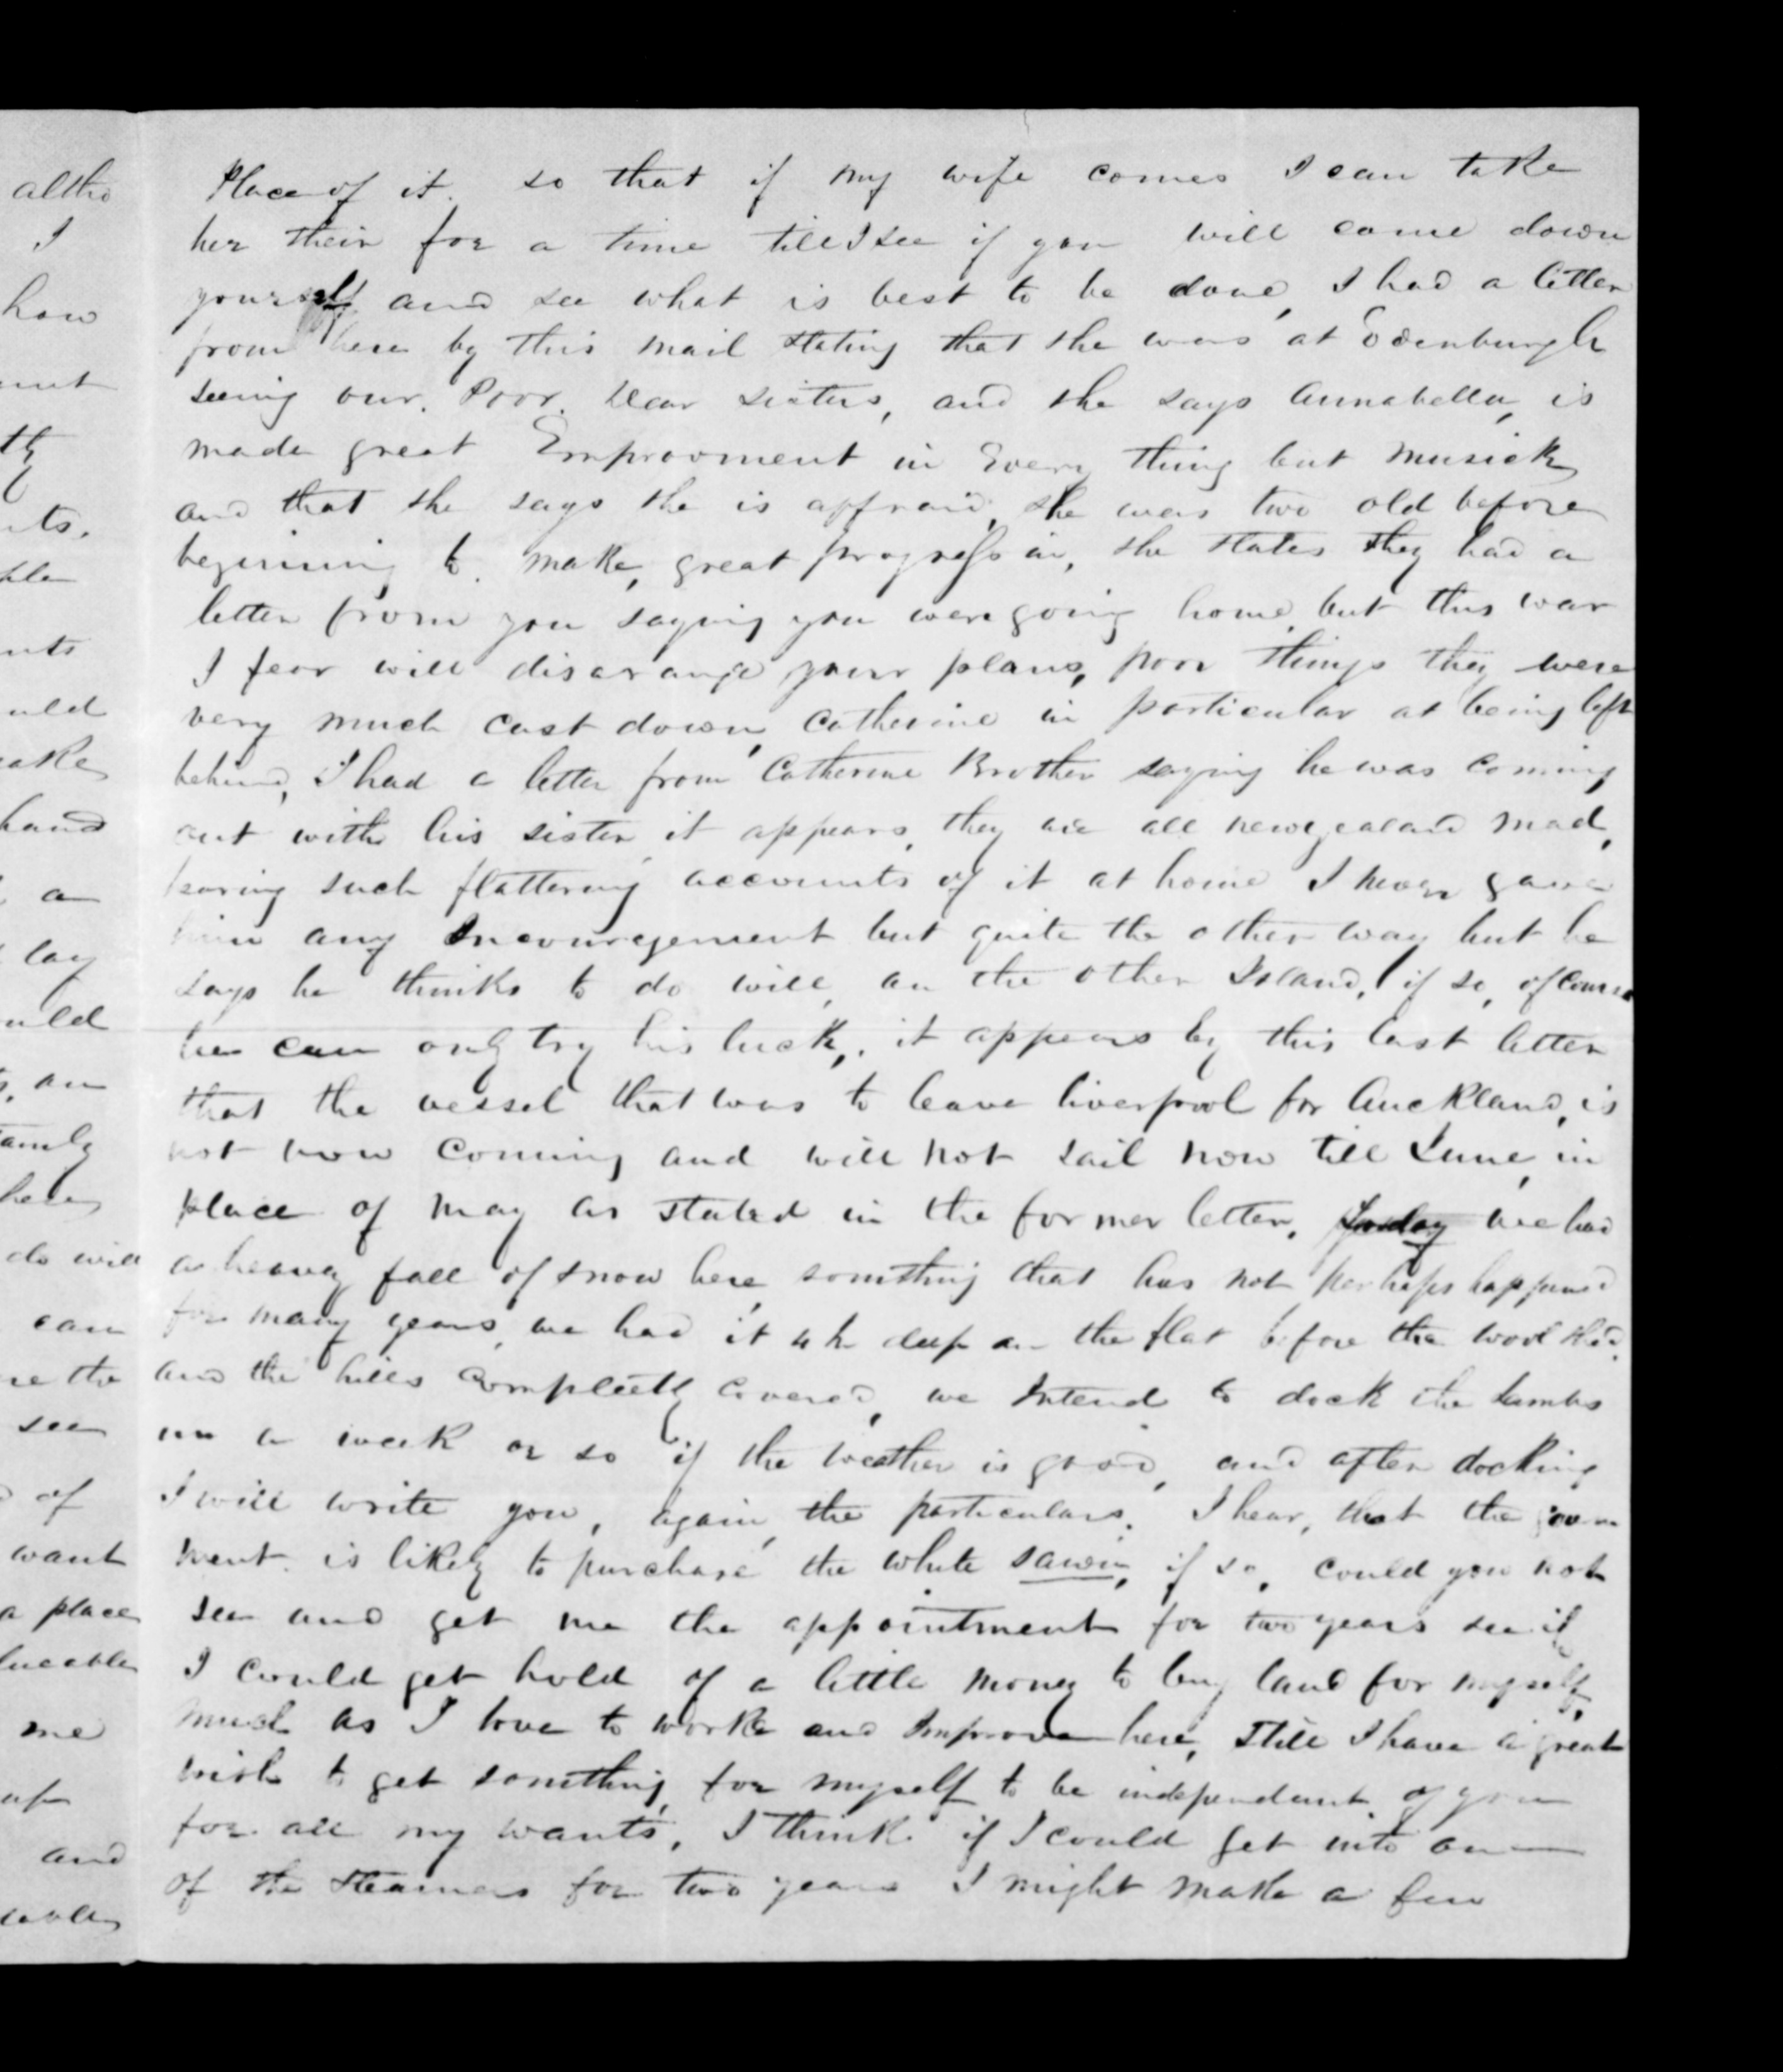 Place of it. so that if my wife comes I can take
her their for a time till I see if you will come down
yourself and see what is best to be done, I had a letter
from here by this mail stating that she was at Edenburgh
seeing our. Poor. Dear sisters, and she says Annabella, is
made great Improovment in Every thing but Musick
and that she says she is affraid, she was two old before
beginning to. make, great progress in, she states they had a
letter from you saying you were going home, but this war
I fear will disarange your plans, poor things they were
very much cast down, Catherine in particular at being left
behind, I had a letter from Catherine Brother saying he was coming
out with his sister, it appears, they are all newzealand mad,
hearing such flattering accounts of it at home I never gave
him any Incouragement but quite the other way but he
says he thinks to do will, on the other Island, if so, of course
he can only try his luck, it appears by this last letter
that the vessel that was to leave liverpool for Auckland, is
not now coming and will not sail now till June, in
place of may as stated in the former letter, we had
a heavy fall of snow here, something that has not perhaps happened
for many years, we had it deep on the flat before the wool shed,
and the hills compleetly covered, we Intend to dock the lambs
in a week or so if the weather is good, and after docking
I will write you, again, the particulars. I hear, that the govern
ment. is likely to purchase the white swan, if so, could you not
see and get me the appointment for two years see if
I could get hold of a little money to buy land for myself,
much as I love to work and Improve here, still I have a great
wish to get something, for myself to be independant of you
for all my wants, I think if I could get into one
of the steamers for two years I might make a few
altho
I
how
ts.
uld
hand
a
lay
uld
an
family
do will
can
the
see
of
want
a place
me
up
and